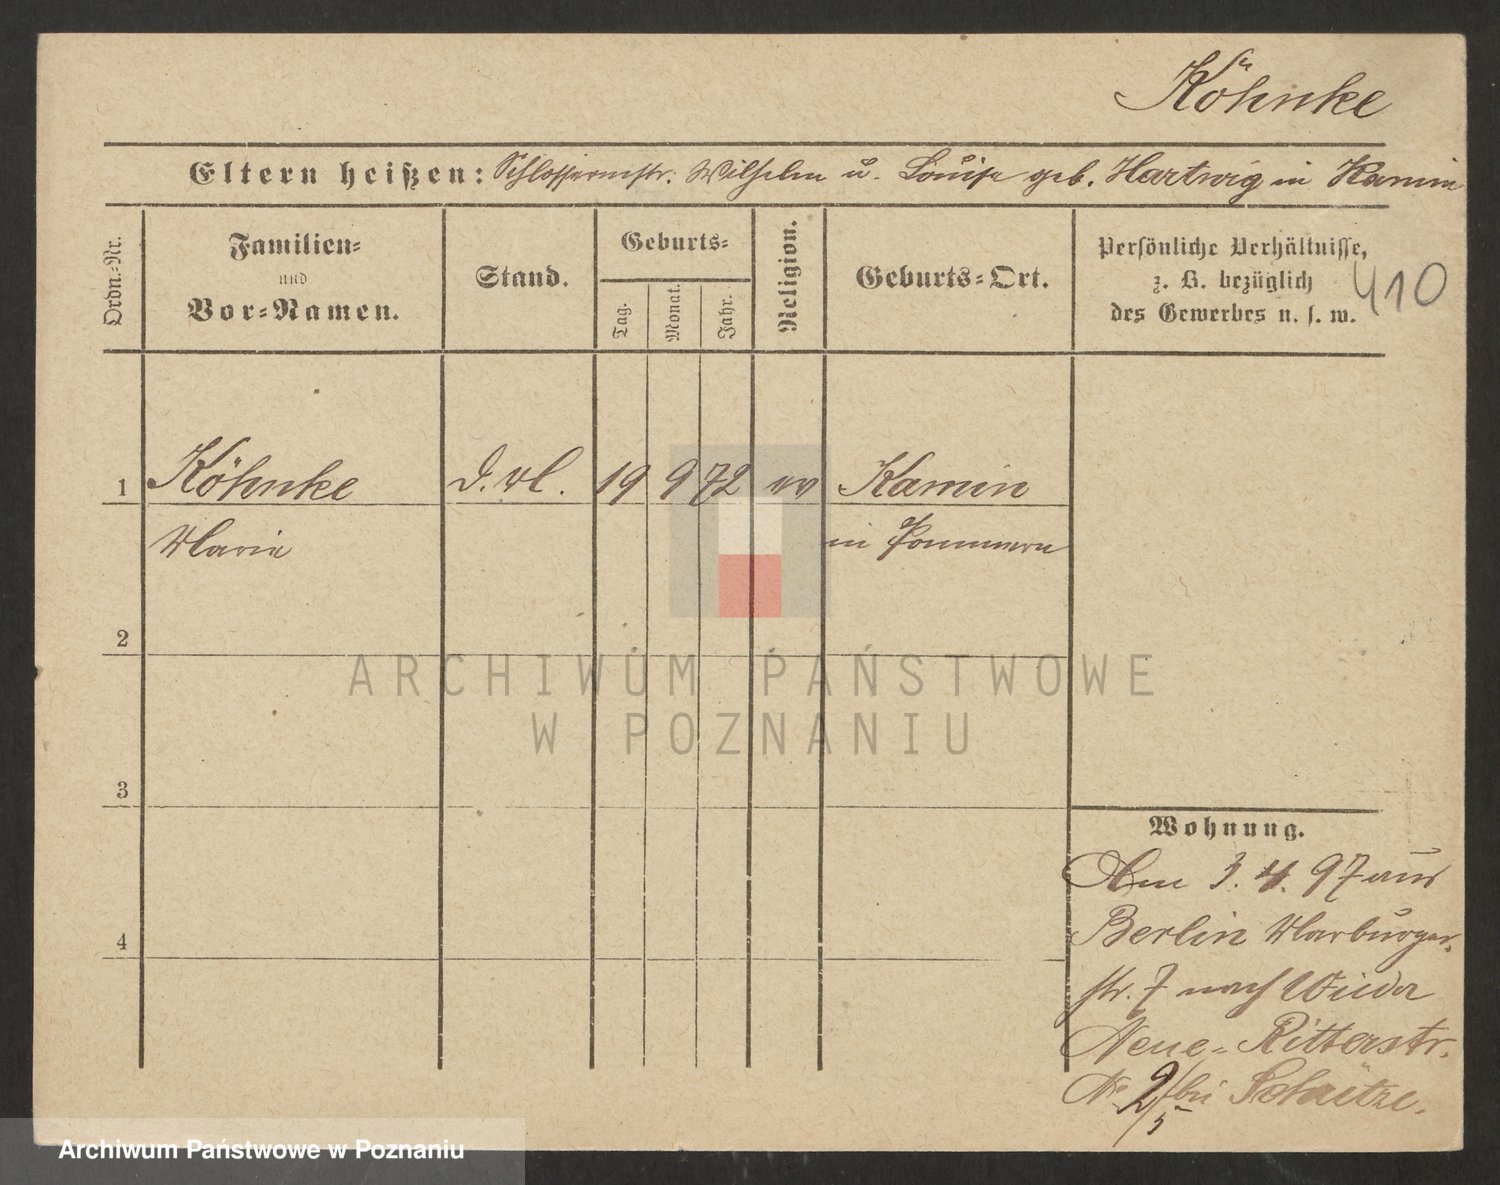 Köhnke
Eltern heißen: Schlossermstr. Wilhelm u. Louise geb. Hartwig in Kamin
Ordn.-Nr.
Familien-
und
Vor-Namen.
Stand.
Geburts-
Tag.
Monat.
Jahr.
Religion.
Geburts-Ort.
Persönliche Verhältnisse,
z. B. bezüglich
des Gewerbes u. s. w.
410
1 Köhnke 19 9 72 ev Kamin
Marie in Pommern
2
3
4
ARCHIWUM PAŃSTWOWE
W POZNANIU
Wohnung.
Am 3. 4. 97 aus
Berlin Marburger-
str. 7 nach Wieder
Neue-Ritterstr.
No 2/5 bei Schütze.
Archiwum Państwowe w Poznaniu